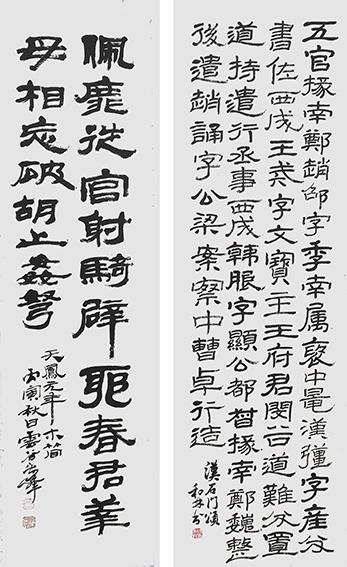 五官掾南鄭趙邵字季南属褒中鼂漢彊字產伯
書佐西成王戒字文寶主王府君閔谷道難分置
道特遣行丞事西成韓朖字顯公都督掾南鄭魏整
後遣趙誦字公梁案察中曹卓行造
漢石門頌
鹿從官射騎辟耶春君
毋相忘破胡止姦弩
天鳳元年木簡
丙寅秋日雲